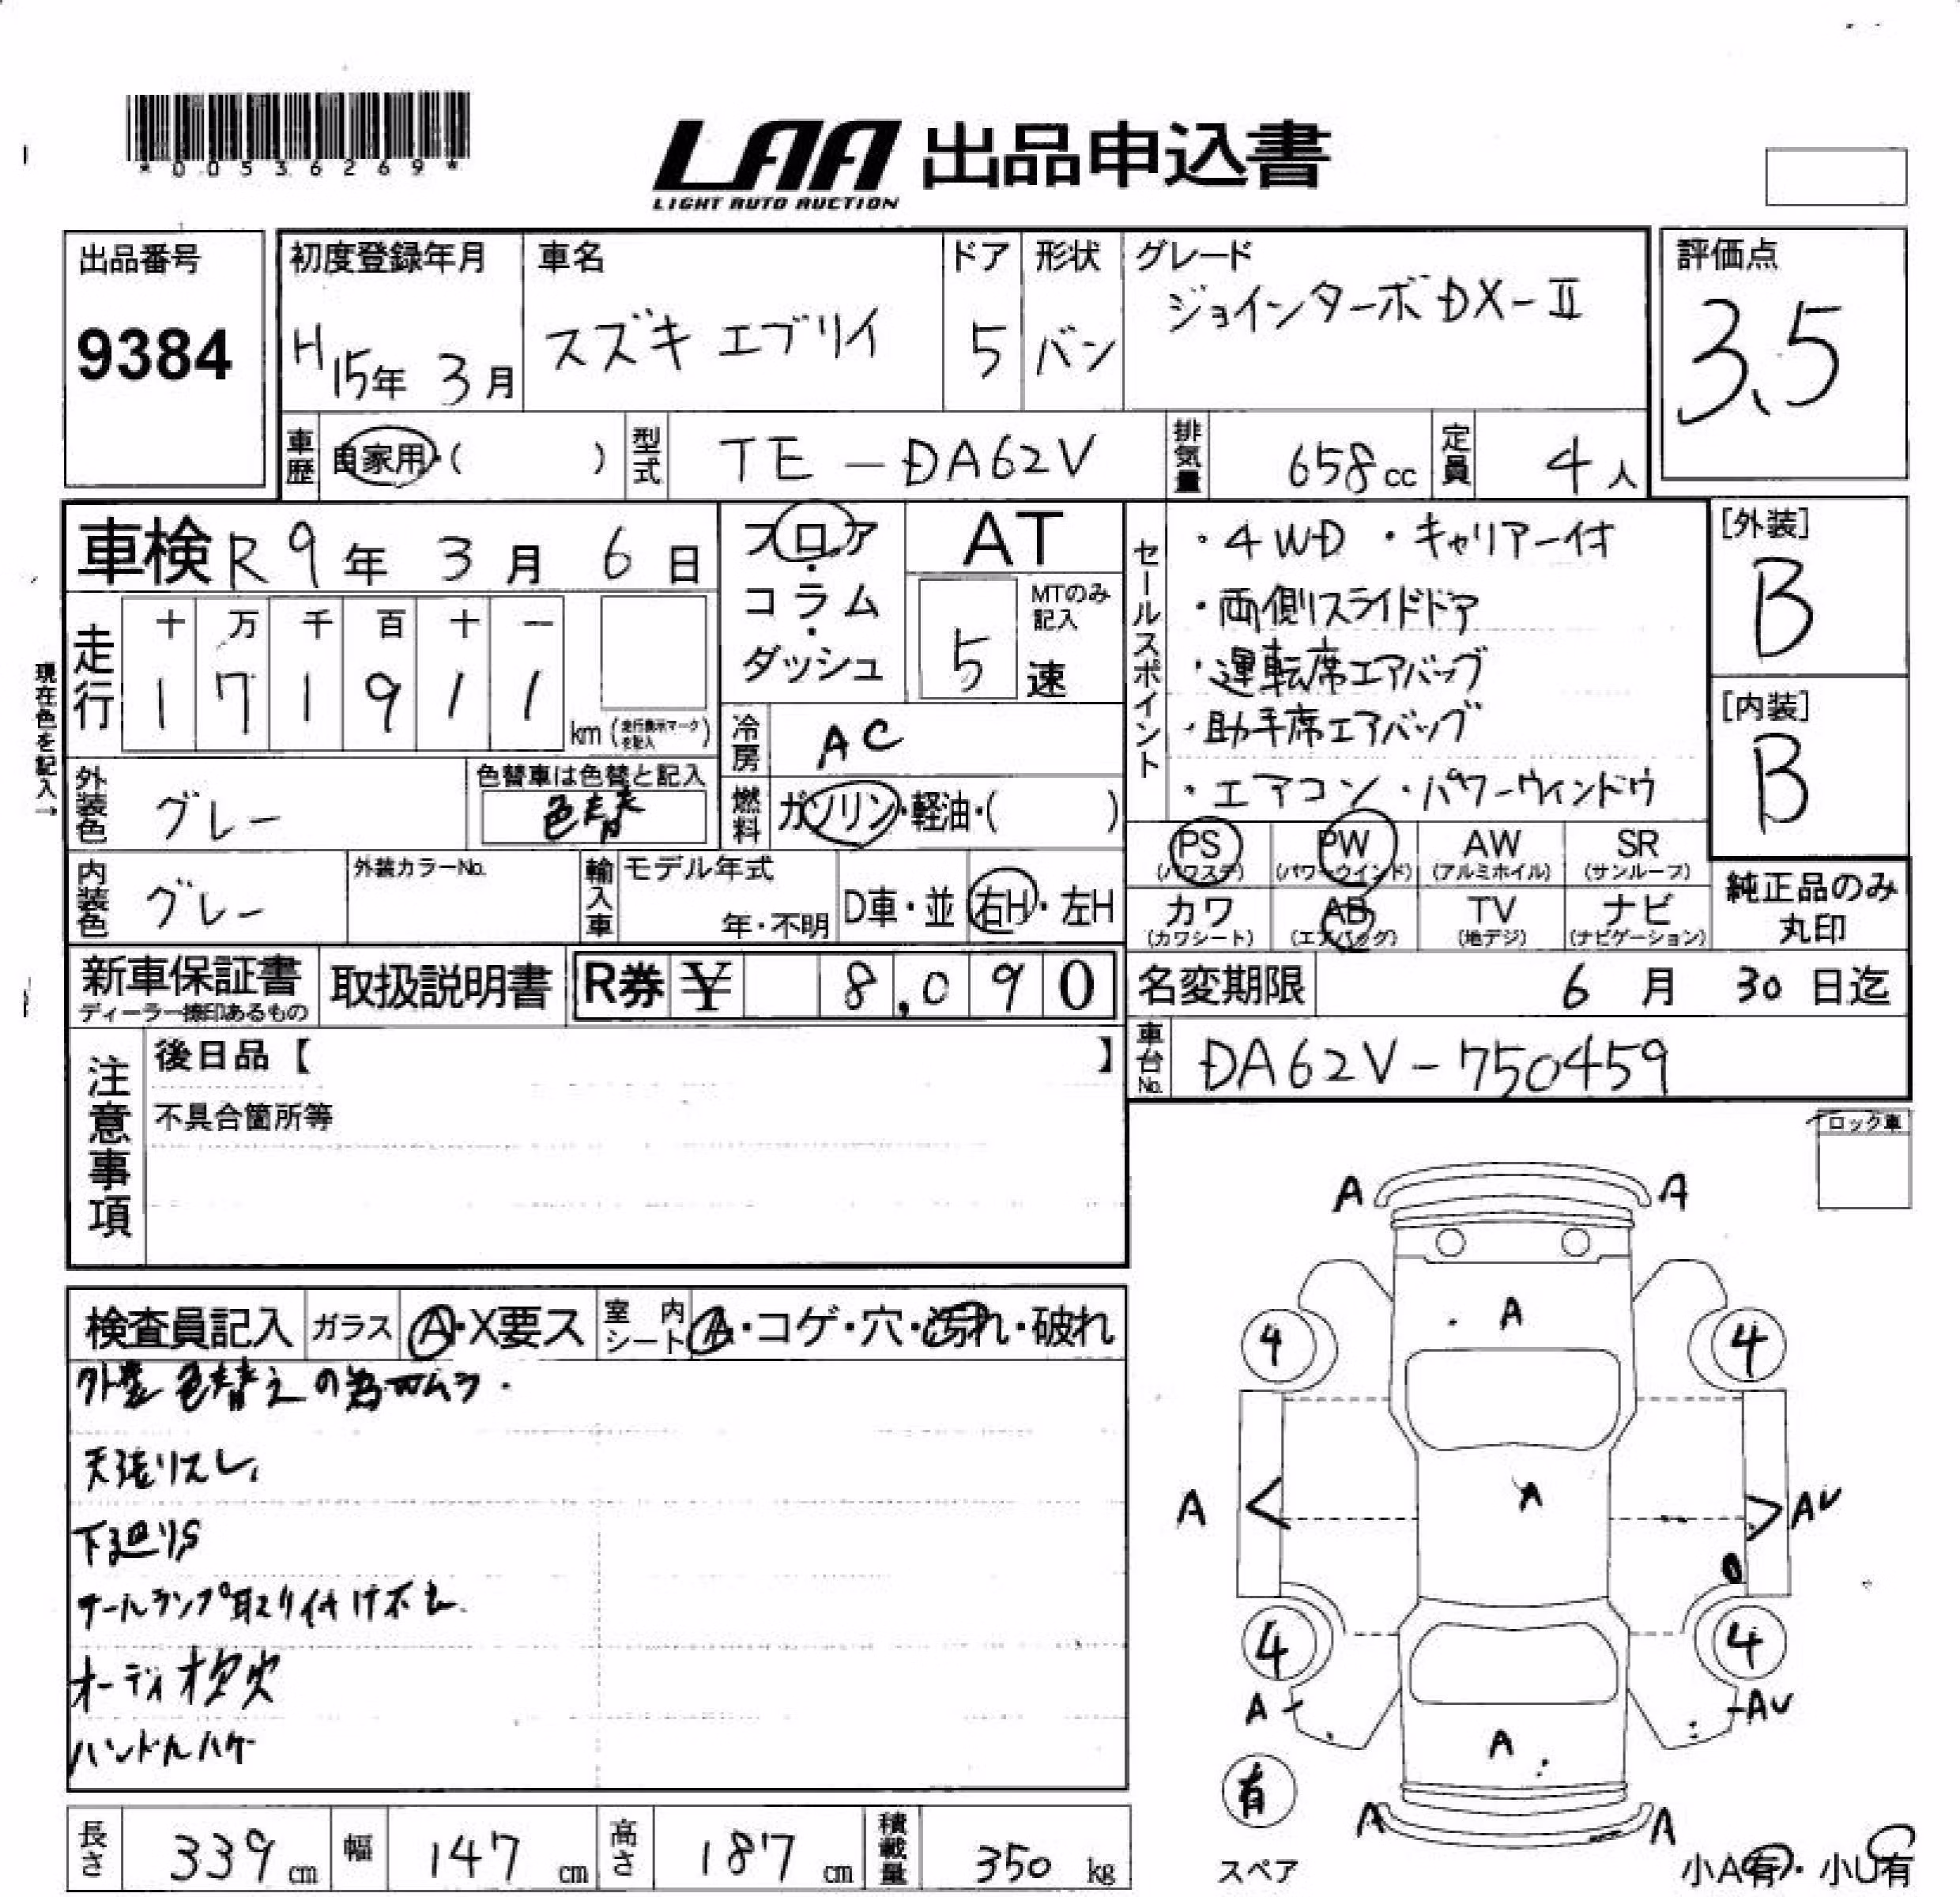 *00536269*
LAA 出品申込書
LIGHT AUTO AUCTION
出品番号
9384
初度登録年月
H15年 3月
車名
スズキ エブリイ
ドア
5
形状
バン
グレード
ジョインターボDX-Ⅱ
評価点
3.5
車歴 自家用・( )
型式 TE-DA62V
排気量 658cc
定員 4人
車検 R9年 3月 6日
フロア・コラム・ダッシュ
AT
MTのみ記入
5 速
セールスポイント
・4WD ・キャリアー付
・両側スライドドア
・運転席エアバッグ
・助手席エアバッグ
・エアコン・パワーウィンドウ
[外装]
B
[内装]
B
現在色を記入→
走行
十 万 千 百 十 一
1 7 1 9 1 1
km (走行表示マークを記入)
冷房 AC
外装色 グレー
色替車は色替と記入
色替
燃料 ガソリン・軽油・( )
内装色 グレー
外装カラーNo.
輸入車 モデル年式
年・不明
D車・並
右H・左H
PS (パワステ)
PW (パワーウインド)
AW (アルミホイル)
SR (サンルーフ)
カワ (カワシート)
AB (エアバッグ)
TV (地デジ)
ナビ (ナビゲーション)
純正品のみ
丸印
新車保証書
ディーラー捺印あるもの
取扱説明書
R券 ¥ 8,090
名変期限 6月 30日迄
車台No. DA62V-750459
注意事項
後日品【 】
不具合箇所等
ロック車
検査員記入
ガラス A・X要ス
室内シート A・コゲ・穴・汚れ・破れ
外装色替えの為ボカムラ・
天張りスレ、
下廻りS
テールランプ取り付け不良
オーディオ欠
ハンドルハゲ
A A
A
4 4
A
A AU
4 4
A AU
A
有
スペア
A A
小A有・小U有
長さ 339cm
幅 147cm
高さ 187cm
積載量 350kg